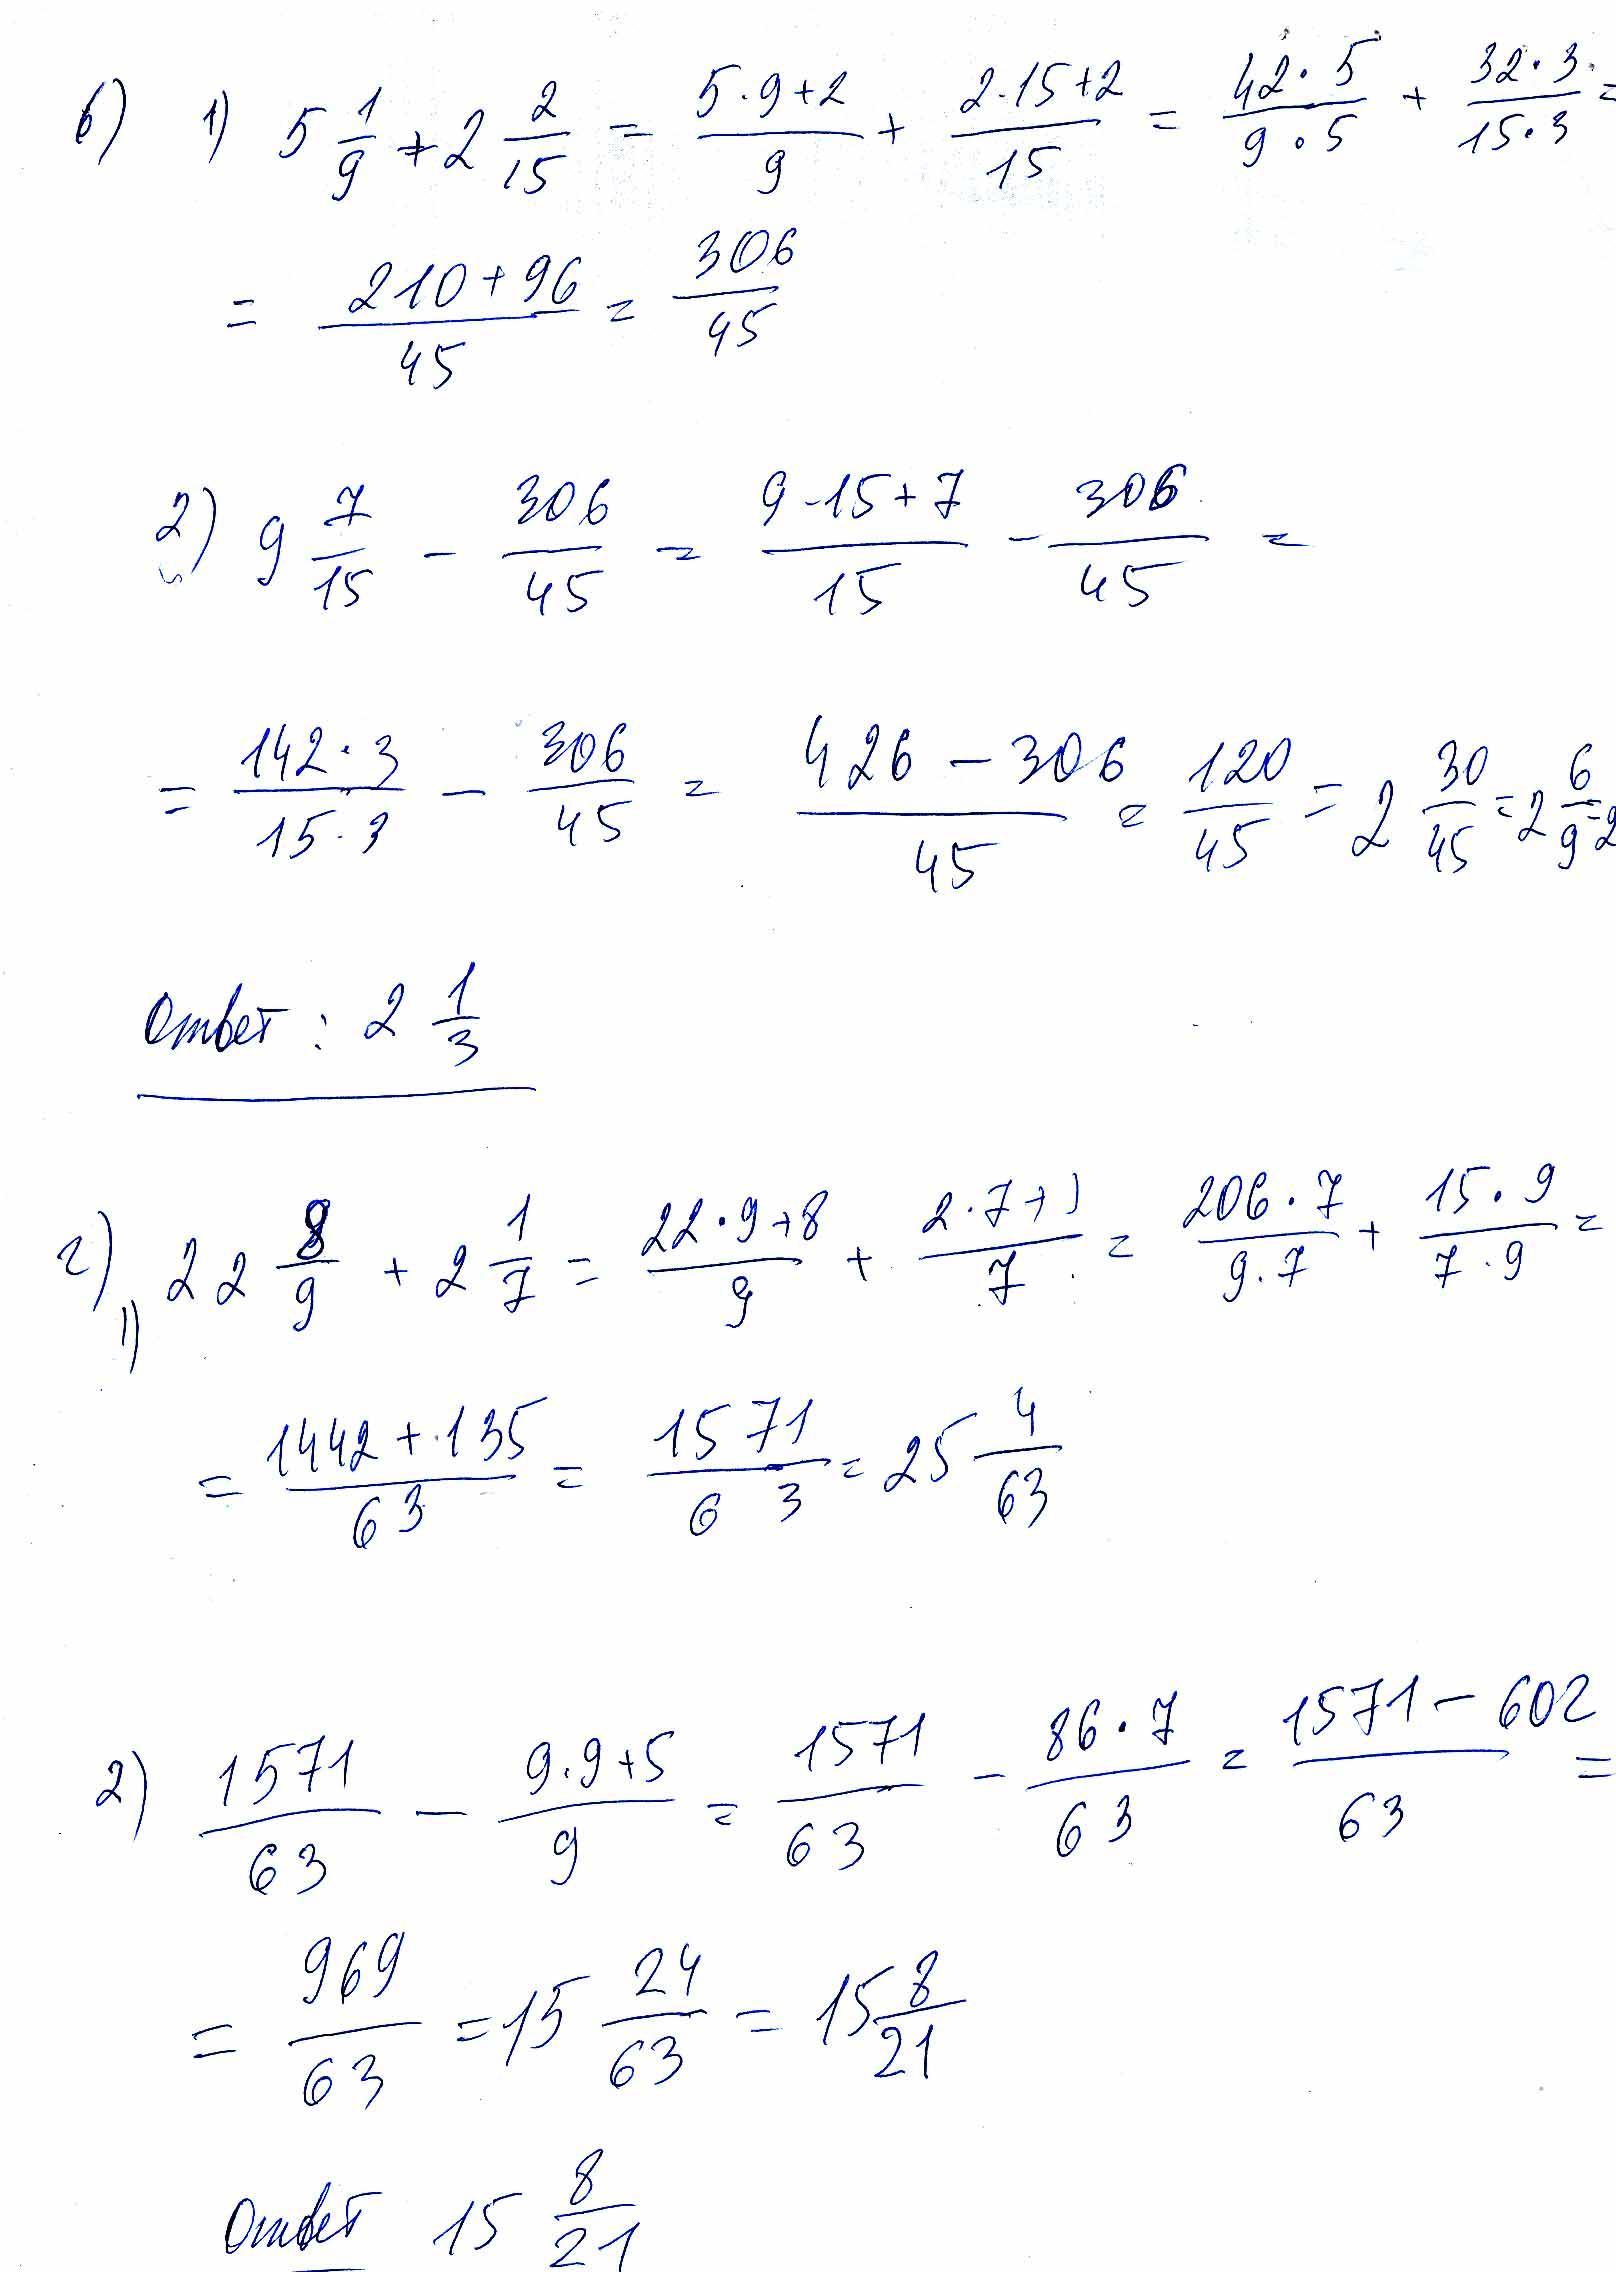 в) 1) 5 1/9 + 2 2/15 = (5·9+2)/9 + (2·15+2)/15 = (42·5)/(9·5) + (32·3)/(15·3) =
= (210+96)/45 = 306/45
2) 9 7/15 - 306/45 = (9·15+7)/15 - 306/45 =
= (142·3)/(15·3) - 306/45 = (426-306)/45 = 120/45 = 2 30/45 = 2 6/9 = 2
Ответ: 2 1/3
г) 1) 22 8/9 + 2 1/7 = (22·9+8)/9 + (2·7+1)/7 = (206·7)/(9·7) + (15·9)/(7·9) =
= (1442+135)/63 = 1571/63 = 25 4/63
2) 1571/63 - (9·9+5)/9 = 1571/63 - (86·7)/63 = (1571-602)/63 =
= 969/63 = 15 24/63 = 15 8/21
Ответ 15 8/21